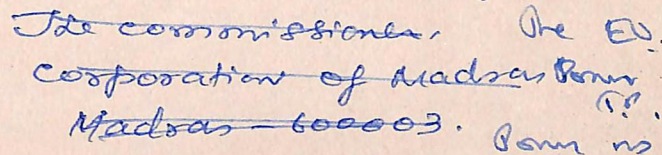 The commissioner, The EO.
corporation of Madras
Madras - 600003.